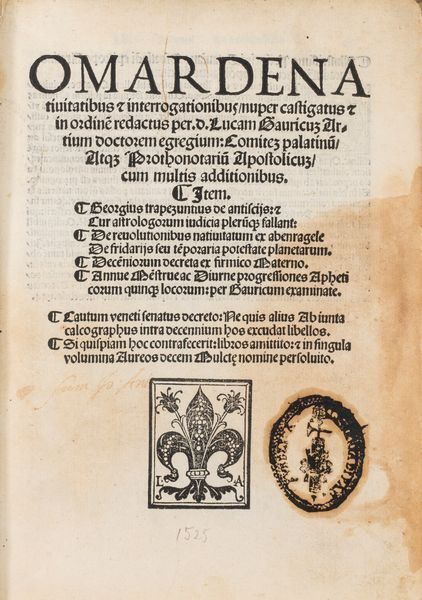 OMAR DE NA
tiuitatibus ⁊ interrogationibus/nuper castigatus ⁊
in ordinē redactus per.d. Lucam Gauricuʒ Ar-
tium doctorem egregium: Comiteʒ palatinū/
Atqʒ Prothonotariū Apostolicuʒ/
cum multis additionibus.
¶ Item.
¶ Georgius trapezuntius de antiscijs: ⁊
Cur astrologorum iudicia plerūqʒ fallant:
¶ De reuolutionibus natiuitatum ex abenragele
De fridarijs seu tēporaria potestate planetarum.
¶ Decēniorum decreta ex firmico Materno.
¶ Annue Mēstrue ac Diurne progressiones Apheti
corum quinqʒ locorum: per Gauricum examinate.
¶ Cautum veneti senatus decreto: Ne quis alius Ab iunta
calcographus intra decennium hos excudat libellos.
¶ Si quispiam hoc contrafecerit: libros amittito: ⁊ in singula
volumina Aureos decem Mulctę nomine persoluito.
L A
1525